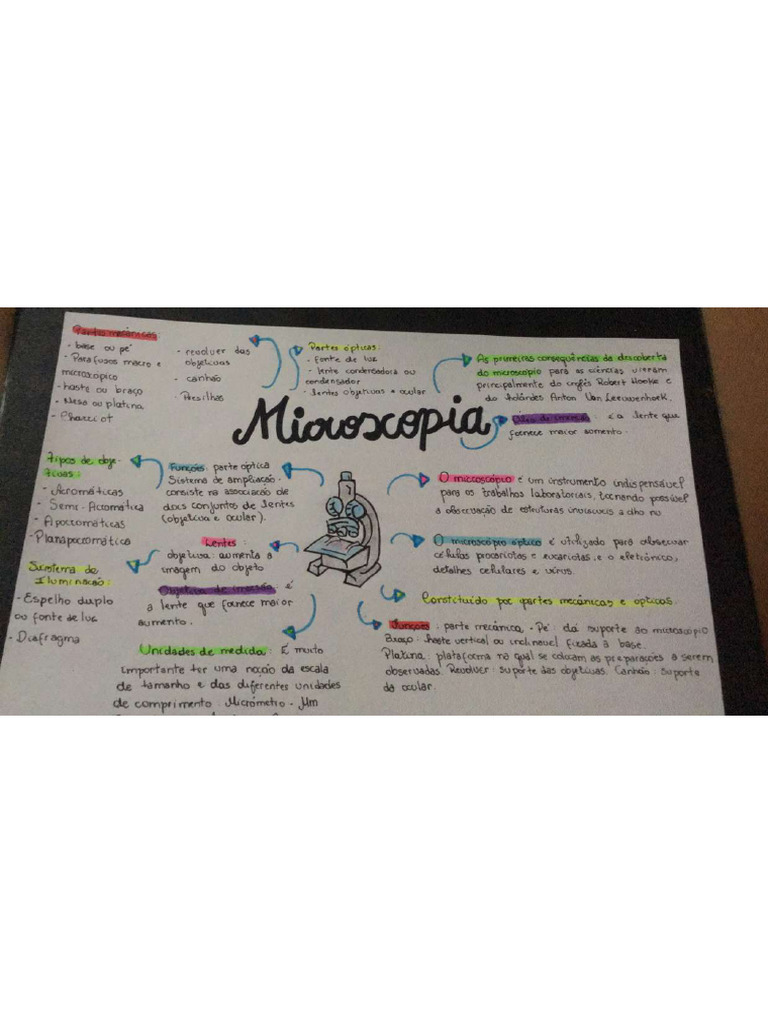 Partes mecânicas:
- base ou pé
- Parafusos macro e
microscópico
- haste ou braço
- Mesa ou platina
- Charriot
- revolver das
objetivas
- canhão
- Presilhas
Partes ópticas:
- fonte de luz
- lente condensadora ou
condensador
- lentes objetivas e ocular
As primeiras consequências da descoberta
do microscópio para as ciências vieram
principalmente do inglês Robert Hooke e
do holandês Anton Van Leeuwenhoek.
Microscopia
Óleo de imersão : é a lente que
fornece maior aumento.
Tipos de obje-
tivas:
- Acromáticas
- Semi-Acromática
- Apocromáticas
- Planapocromática
Funções: parte óptica
Sistema de ampliação -
consiste na associação de
dois conjuntos de lentes
(objetiva e ocular).
O microscópio é um instrumento indispensável
para os trabalhos laboratoriais, tornando possível
a observação de estruturas invisíveis a olho nu
Lentes:
objetiva: aumenta a
imagem do objeto
O microscópio óptico é utilizado para observar
células procariotas e eucariotas, e o eletrônico,
detalhes celulares e vírus.
Sistema de
Iluminação:
- Espelho duplo
ou fonte de luz
- Diafragma
Objetiva de imersão: é
a lente que fornece maior
aumento.
Constituído por partes mecânicas e ópticas.
Unidades de medida: É muito
importante ter uma noção da escala
de tamanho e das diferentes unidades
de comprimento. Micrômetro - Mm
Funções: parte mecânica. - Pé: dá suporte ao microscópio
Braço: haste vertical ou inclinável fixada à base.
Platina: plataforma na qual se colocam as preparações a serem
observadas. Revolver: suporte das objetivas. Canhão: suporte
da ocular.